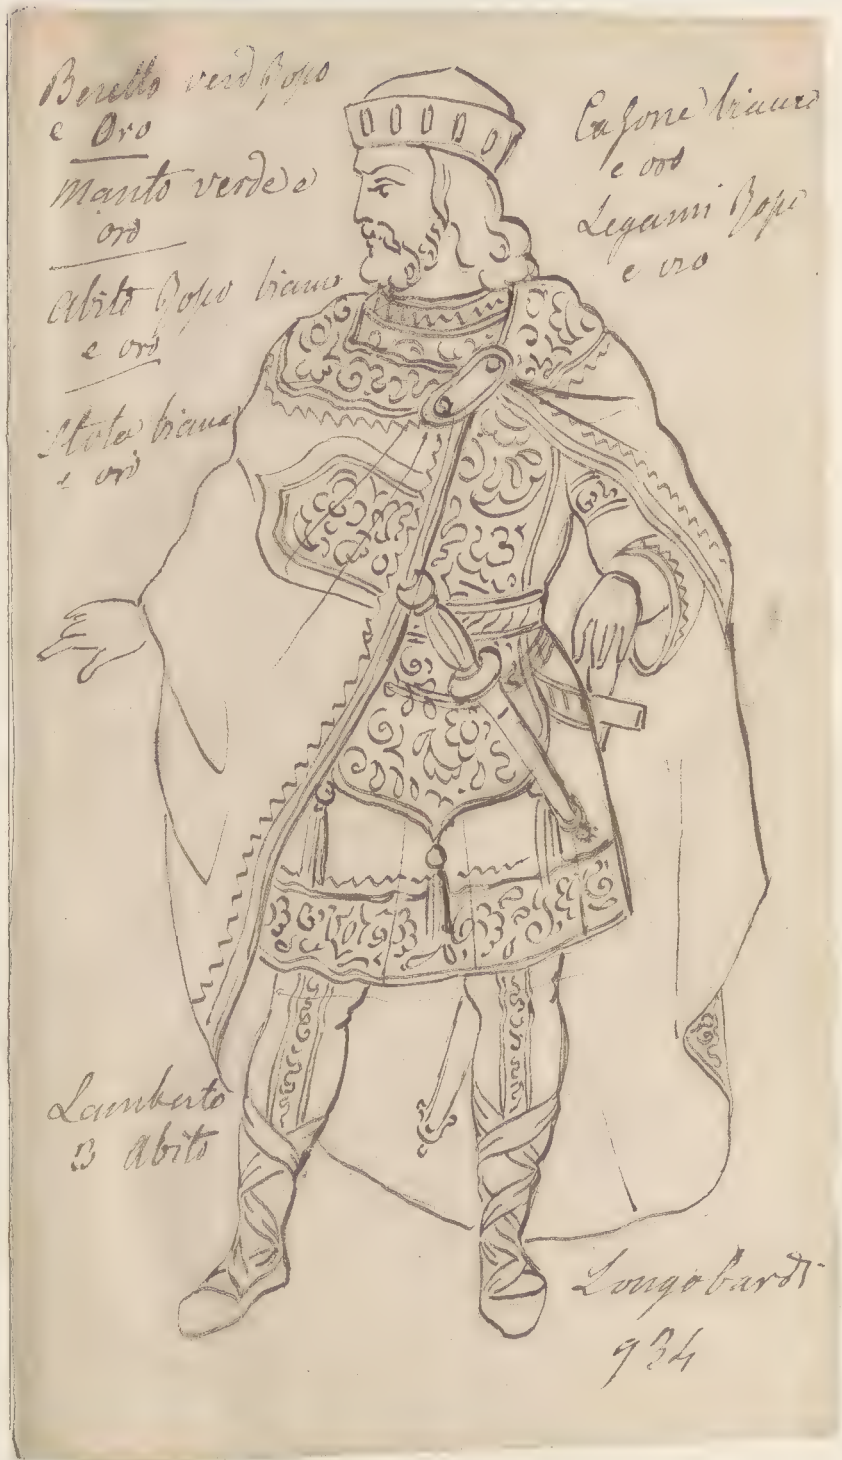 Beretto verd Roso
e Oro
Manto verde e
oro
Abito Roso bianc
e oro
Stola bianca
e oro
Casone bianco
e oro
Legami Rosi
e oro
Lamberto
3 Abito
Longobardi
934